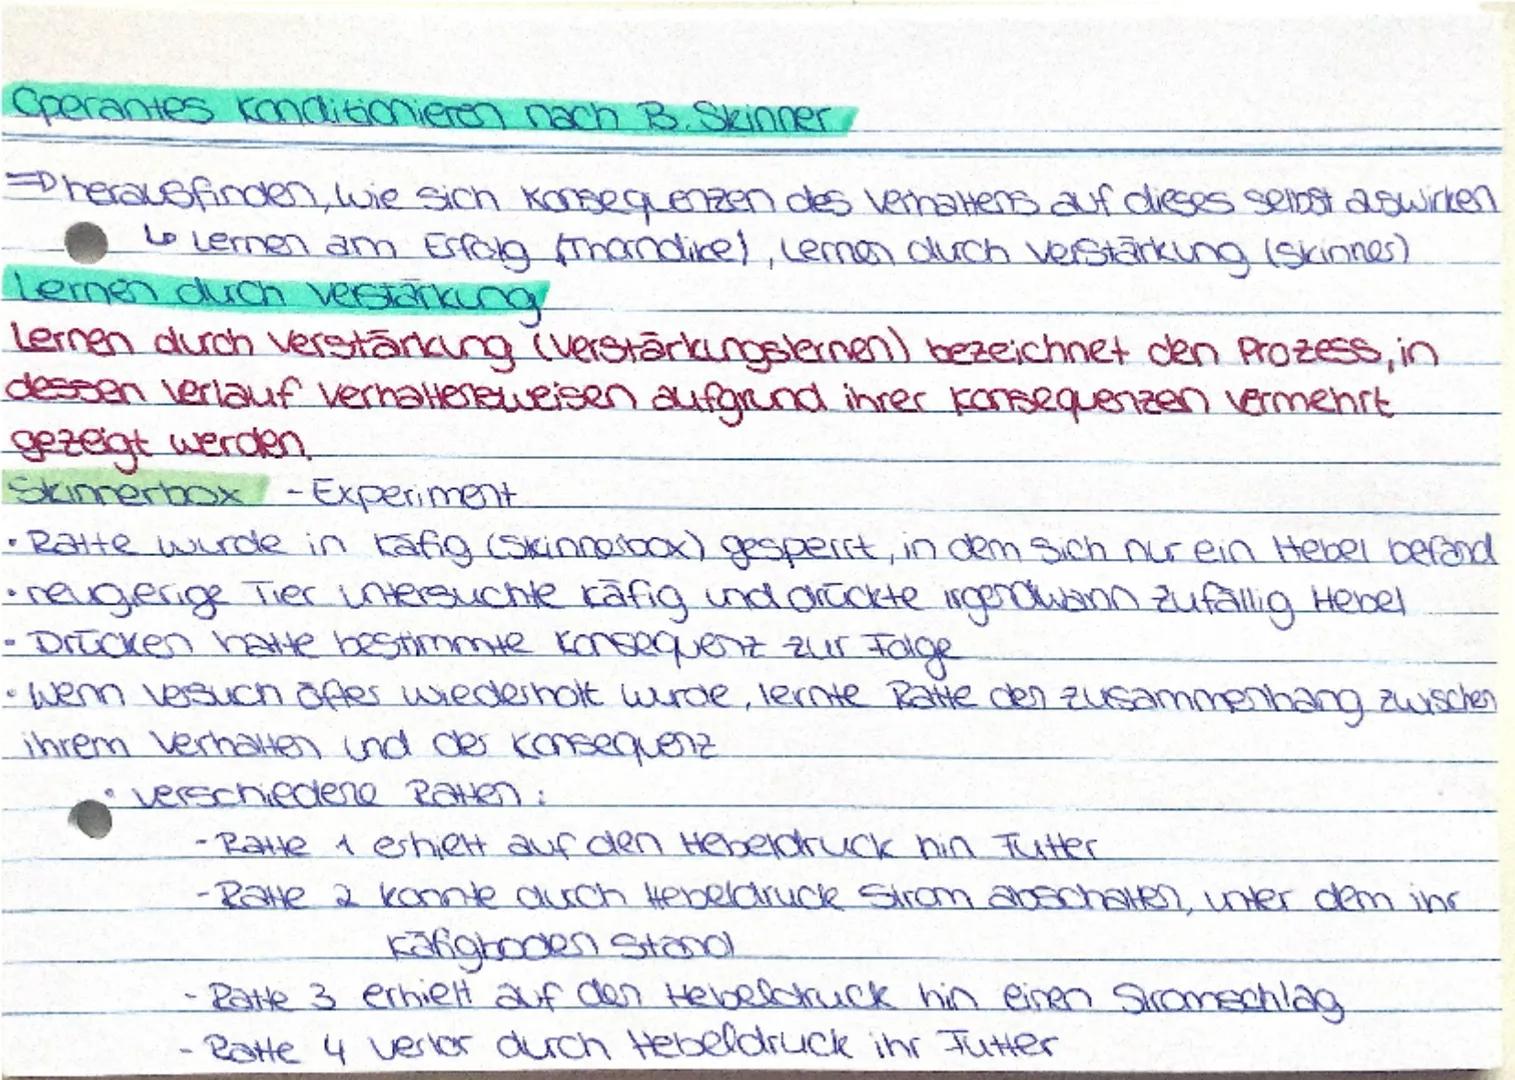 Operantes Konditionieren nach B. Skinner
⇒ herausfinden, wie sich Konsequenzen des Verhaltens auf dieses selbst auswirken
↳ Lernen am Erfolg (Thorndike), Lernen durch Verstärkung (Skinner)
Lernen durch Verstärkung
Lernen durch Verstärkung (Verstärkungslernen) bezeichnet den Prozess, in
dessen Verlauf Verhaltensweisen aufgrund ihrer Konsequenzen vermehrt
gezeigt werden.
Skinnerbox - Experiment
• Ratte wurde in Käfig (Skinnerbox) gesperrt, in dem sich nur ein Hebel befand
• neugierige Tier untersuchte Käfig und drückte irgendwann zufällig Hebel
- Drücken hatte bestimmte Konsequenz zur Folge
• Wenn Versuch öfter wiederholt wurde, lernte Ratte den Zusammenhang zwischen
ihrem Verhalten und der Konsequenz
• verschiedene Ratten:
- Ratte 1 erhielt auf den Hebeldruck hin Futter
- Ratte 2 konnte durch Hebeldruck Strom abschalten, unter dem ihr
Käfigboden stand
- Ratte 3 erhielt auf den Hebeldruck hin einen Stromschlag
- Ratte 4 verlor durch Hebeldruck ihr Futter